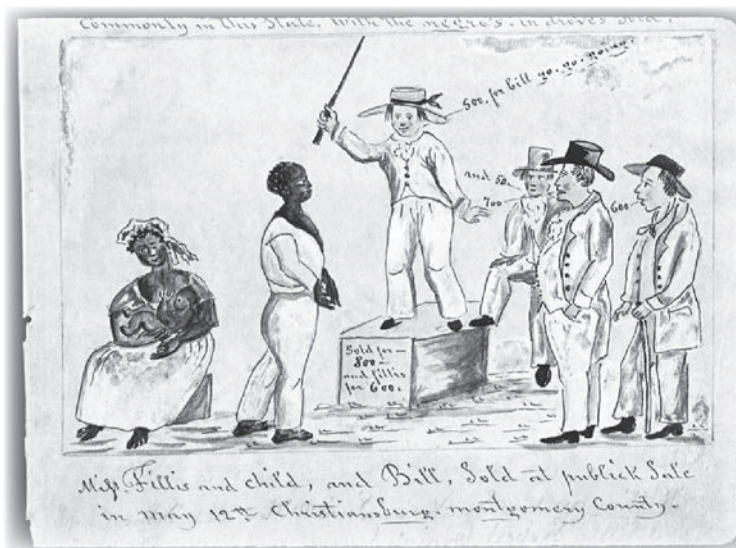 Commonly in this State, with the negro's. in droves Sold,
500. for bill go. go. going.
and 50.
700
600
Sold for —
800 —
and fillis
for 600.
Miss. Fillis and child, and Bill, Sold at publick Sale
in May 12th. Christiansburg. montgomery County.